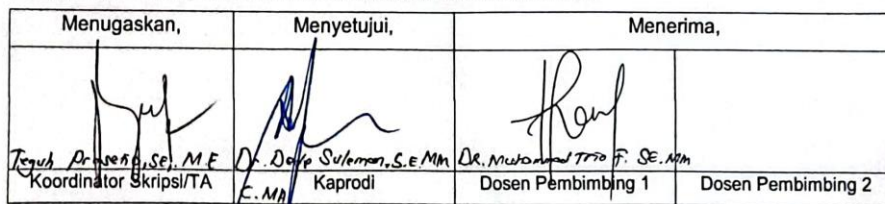 Menugaskan,
Menyetujui,
Menerima,
Teguh Prasetio, SE., M.E
Dr. Dede Suleman, S.E. MM
C. MA
DR. Muhammad Trio F. SE. MM
Koordinator Skripsi/TA
Kaprodi
Dosen Pembimbing 1
Dosen Pembimbing 2